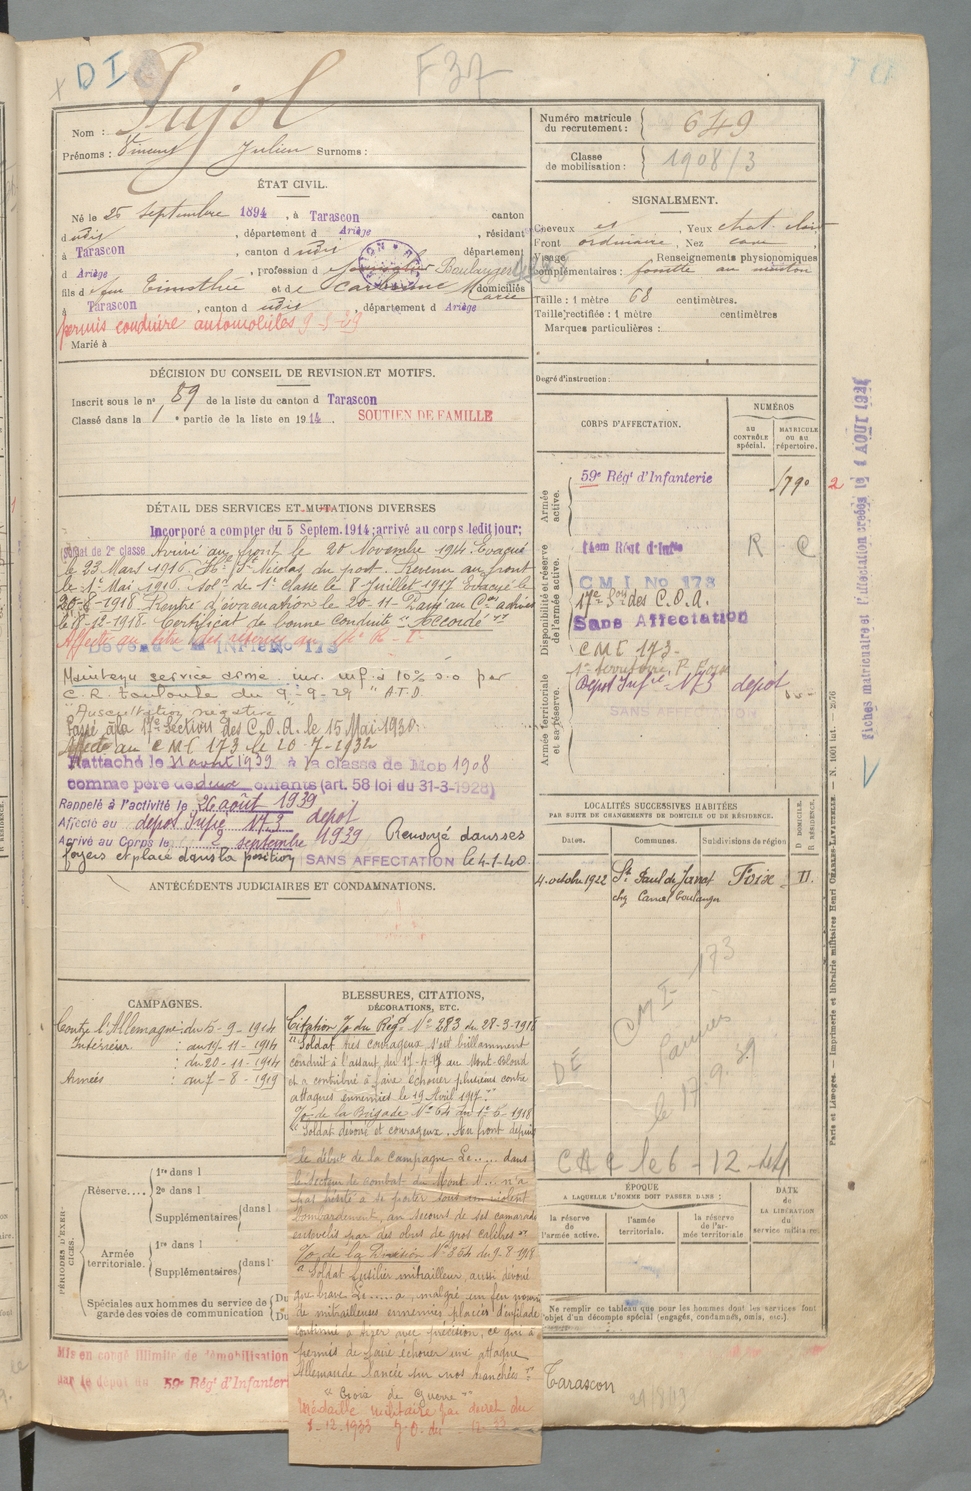 DI
F37
Nom : Pujol
Prénoms : Vincent Julien Surnoms :
Numéro matricule du recrutement : 649
Classe de mobilisation : 1908/3
ÉTAT CIVIL.
Né le 25 septembre 1894, à Tarascon canton
dudit, département d Ariège, résidant
à Tarascon, canton dudit département
d Ariège, profession d Boulanger
fils d feu Timothée et de Marie domiciliés
à Tarascon, canton dudit, département d Ariège
permis conduire automobiles 9-5-29
Marié à
SIGNALEMENT.
Cheveux , Yeux chat. clair
Front ordinaire, Nez
Visage Renseignements physionomiques
complémentaires : fossette au menton
Taille : 1 mètre 68 centimètres.
Taille rectifiée : 1 mètre centimètres
Marques particulières :
Degré d'instruction :
DÉCISION DU CONSEIL DE REVISION ET MOTIFS.
Inscrit sous le n° 89 de la liste du canton d Tarascon
Classé dans la 1e partie de la liste en 1914. SOUTIEN DE FAMILLE
DÉTAIL DES SERVICES ET MUTATIONS DIVERSES
Incorporé a compter du 5 Septem. 1914; arrivé au corps ledit jour;
soldat de 2e classe Arrivé au front le 20 Novembre 1914. Evacué
le 23 Mars 1916 St Nicolas du port. Revenu au front
le 1er Mai 1916. Sol. de 1e classe le 8 Juillet 1917 Evacué le
20-8-1918 Rentré d'évacuation le 20-11- Passé au
le 8-12-1918. Certificat de bonne conduite "Accordé"
Devenu C M INFie No 173
Maintenu service armé. inv. inf. à 10% s.o par
C.R. Toulouse du 9-9-29 "A.T.D.
"Auscultation négative"
Passé à la 17e Section des C.O.A. le 15 Mai 1930.
Affecté au C M I 173 le 20-7-1932
Rattaché le 11 avril 1939 à la classe de Mob 1908
comme père de deux enfants (art. 58 loi du 31-3-1928)
Rappelé à l'activité le 26 août 1939
Affecté au depot Infie 173 depot
Arrivé au Corps le 2 septembre 1939 Renvoyé dans ses
foyers et placé dans la position SANS AFFECTATION le 4-1-40.
ANTÉCÉDENTS JUDICIAIRES ET CONDAMNATIONS.
CORPS D'AFFECTATION.
NUMÉROS
AU CONTRÔLE spécial.
MATRICULE ou au répertoire.
Armée active.
59e Régt d'Infanterie
Disponibilité et réserve de l'armée active.
R C
C.M.I. No 173
17e Son des C.O.A.
Sans Affectation
C M I 173
Armée territoriale et sa réserve.
Depot Infie 173 depot
SANS AFFECTATION
LOCALITÉS SUCCESSIVES HABITÉES
PAR SUITE DE CHANGEMENTS DE DOMICILE OU DE RÉSIDENCE.
Dates. Communes. Subdivisions de région D. DOMICILE. R. RÉSIDENCE.
4 octobre 1922 St Paul de Jarrat Foix
chez Carrat boulanger
CMI 173
Pamiers
le 17.9.39
DE
CAMPAGNES.
Contre l'Allemagne : du 5-9-1914
Intérieur : au 19-11-1914
: du 20-11-1914
Armées : au 7-8-1919
BLESSURES, CITATIONS,
DÉCORATIONS, ETC.
Citation % du Régt N° 283 du 28-3-1918
"Soldat très courageux s'est brillamment
conduit à l'assaut, du 17-4-17 au Mont-Blond
et a contribué à faire échouer plusieurs contre
attaques ennemies le 19 Avril 1917."
% de la Brigade N° 64 du 1e-6-1918
"Soldat dévoué et courageux. Au front depuis
le début de la campagne Le..... dans
le secteur de combat du Mont N... n'a
pas hésité à se porter sous un violent
bombardement, au secours de ses camarades
ensevelis par des obus de gros calibre"
% de la Division N° 364 du 9-8-1918
"Soldat fusilier mitrailleur, aussi dévoué
que brave. Le.....a, malgré un feu nourri
de mitrailleuses ennemies placées d'enfilade
continué à tirer avec précision, ce qui a
permis de faire échouer une attaque
Allemande lancée sur nos tranchées"
"Croix de Guerre"
Médaille militaire par décret du
1-12-1933 J.O. du
PÉRIODES D'EXERCICES.
Réserve.... 1re dans l
2e dans l
Supplémentaires dans l
Armée territoriale. 1re dans l
Supplémentaires dans l
Spéciales aux hommes du service de garde des voies de communication Du
Du
ÉPOQUE
A LAQUELLE L'HOMME DOIT PASSER DANS :
la réserve de l'armée active. l'armée territoriale. la réserve de l'armée territoriale
DATE de LA LIBÉRATION du service militaire.
Ne remplir ce tableau que pour les hommes dont les services font
objet d'un décompte spécial (engagés, condamnés, omis, etc.).
Mis en congé illimité de démobilisation
par le dépôt du 59e Régt d'Infanterie
Tarascon
Paris et Limoges. — Imprimerie et librairie militaires Henri CHARLES-LAVAUZELLE. — N. 1601